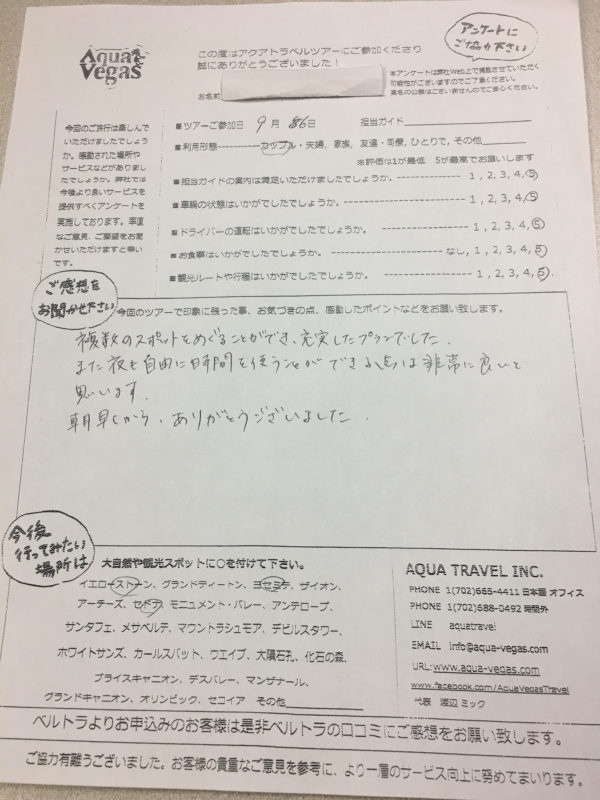 Aqua Vegas
この度はアクアトラベルツアーにご参加くださり
誠にありがとうございました！
アンケートに
ご協力下さい
本アンケートは弊社Web上で掲載させていただく
可能性がございますのでご了承ください。
実名の公表はございませんのでご安心ください。
お名前
今回のご旅行は楽しんで
いただけましたでしょう
か。感動された場所や
サービスなどがありまし
たでしょうか。弊社では
今後より良いサービスを
提供すべくアンケートを
実施しております。率直
なご意見、ご要望をお聞
かせいただけますと幸い
です。
■ツアーご参加日 9月 6日 担当ガイド
■利用形態----------カップル・夫婦, 家族, 友達・同僚, ひとりで, その他
※評価は1が最低 5が最高でお願いします
■担当ガイドの案内は満足いただけましたでしょうか。 1, 2, 3, 4, 5
■車輛の状態はいかがでしたでしょうか。 1, 2, 3, 4, 5
■ドライバーの運転はいかがでしたでしょうか。 1, 2, 3, 4, 5
■お食事はいかがでしたでしょうか。 なし, 1, 2, 3, 4, 5
■観光ルートや行程はいかがでしたでしょうか。 1, 2, 3, 4, 5
ご感想を
お聞かせ下さい
今回のツアーで印象に残った事、お気づきの点、感動したポイントなどをお願い致します。
複数のスポットをめぐることができ、充実したプランでした。
また夜も自由に時間を使うことができる点は非常に良いと
思います。
朝早くから、ありがとうございました。
今後
行ってみたい
場所は
大自然や観光スポットに○を付けて下さい。
イエローストーン、グランドティートン、ヨセミテ、ザイオン、
アーチーズ、セドナ、モニュメント・バレー、アンテロープ、
サンタフェ、メサベルテ、マウントラシュモア、デビルスタワー、
ホワイトサンズ、カールスバット、ウエイブ、大隕石孔、化石の森、
ブライスキャニオン、デスバレー、マンザナール、
グランドキャニオン、オリンピック、セコイア その他
AQUA TRAVEL INC.
PHONE 1(702)665-4411 日本語 オフィス
PHONE 1(702)688-0492 時間外
LINE aquatravel
EMAIL info@aqua-vegas.com
URL:www.aqua-vegas.com
www.facebook.com/AquaVegasTravel
代表 渡辺 ミック
ベルトラよりお申込みのお客様は是非ベルトラの口コミにご感想をお願い致します。
ご協力有難うございました。お客様の貴重なご意見を参考に、より一層のサービス向上に努めてまいります。